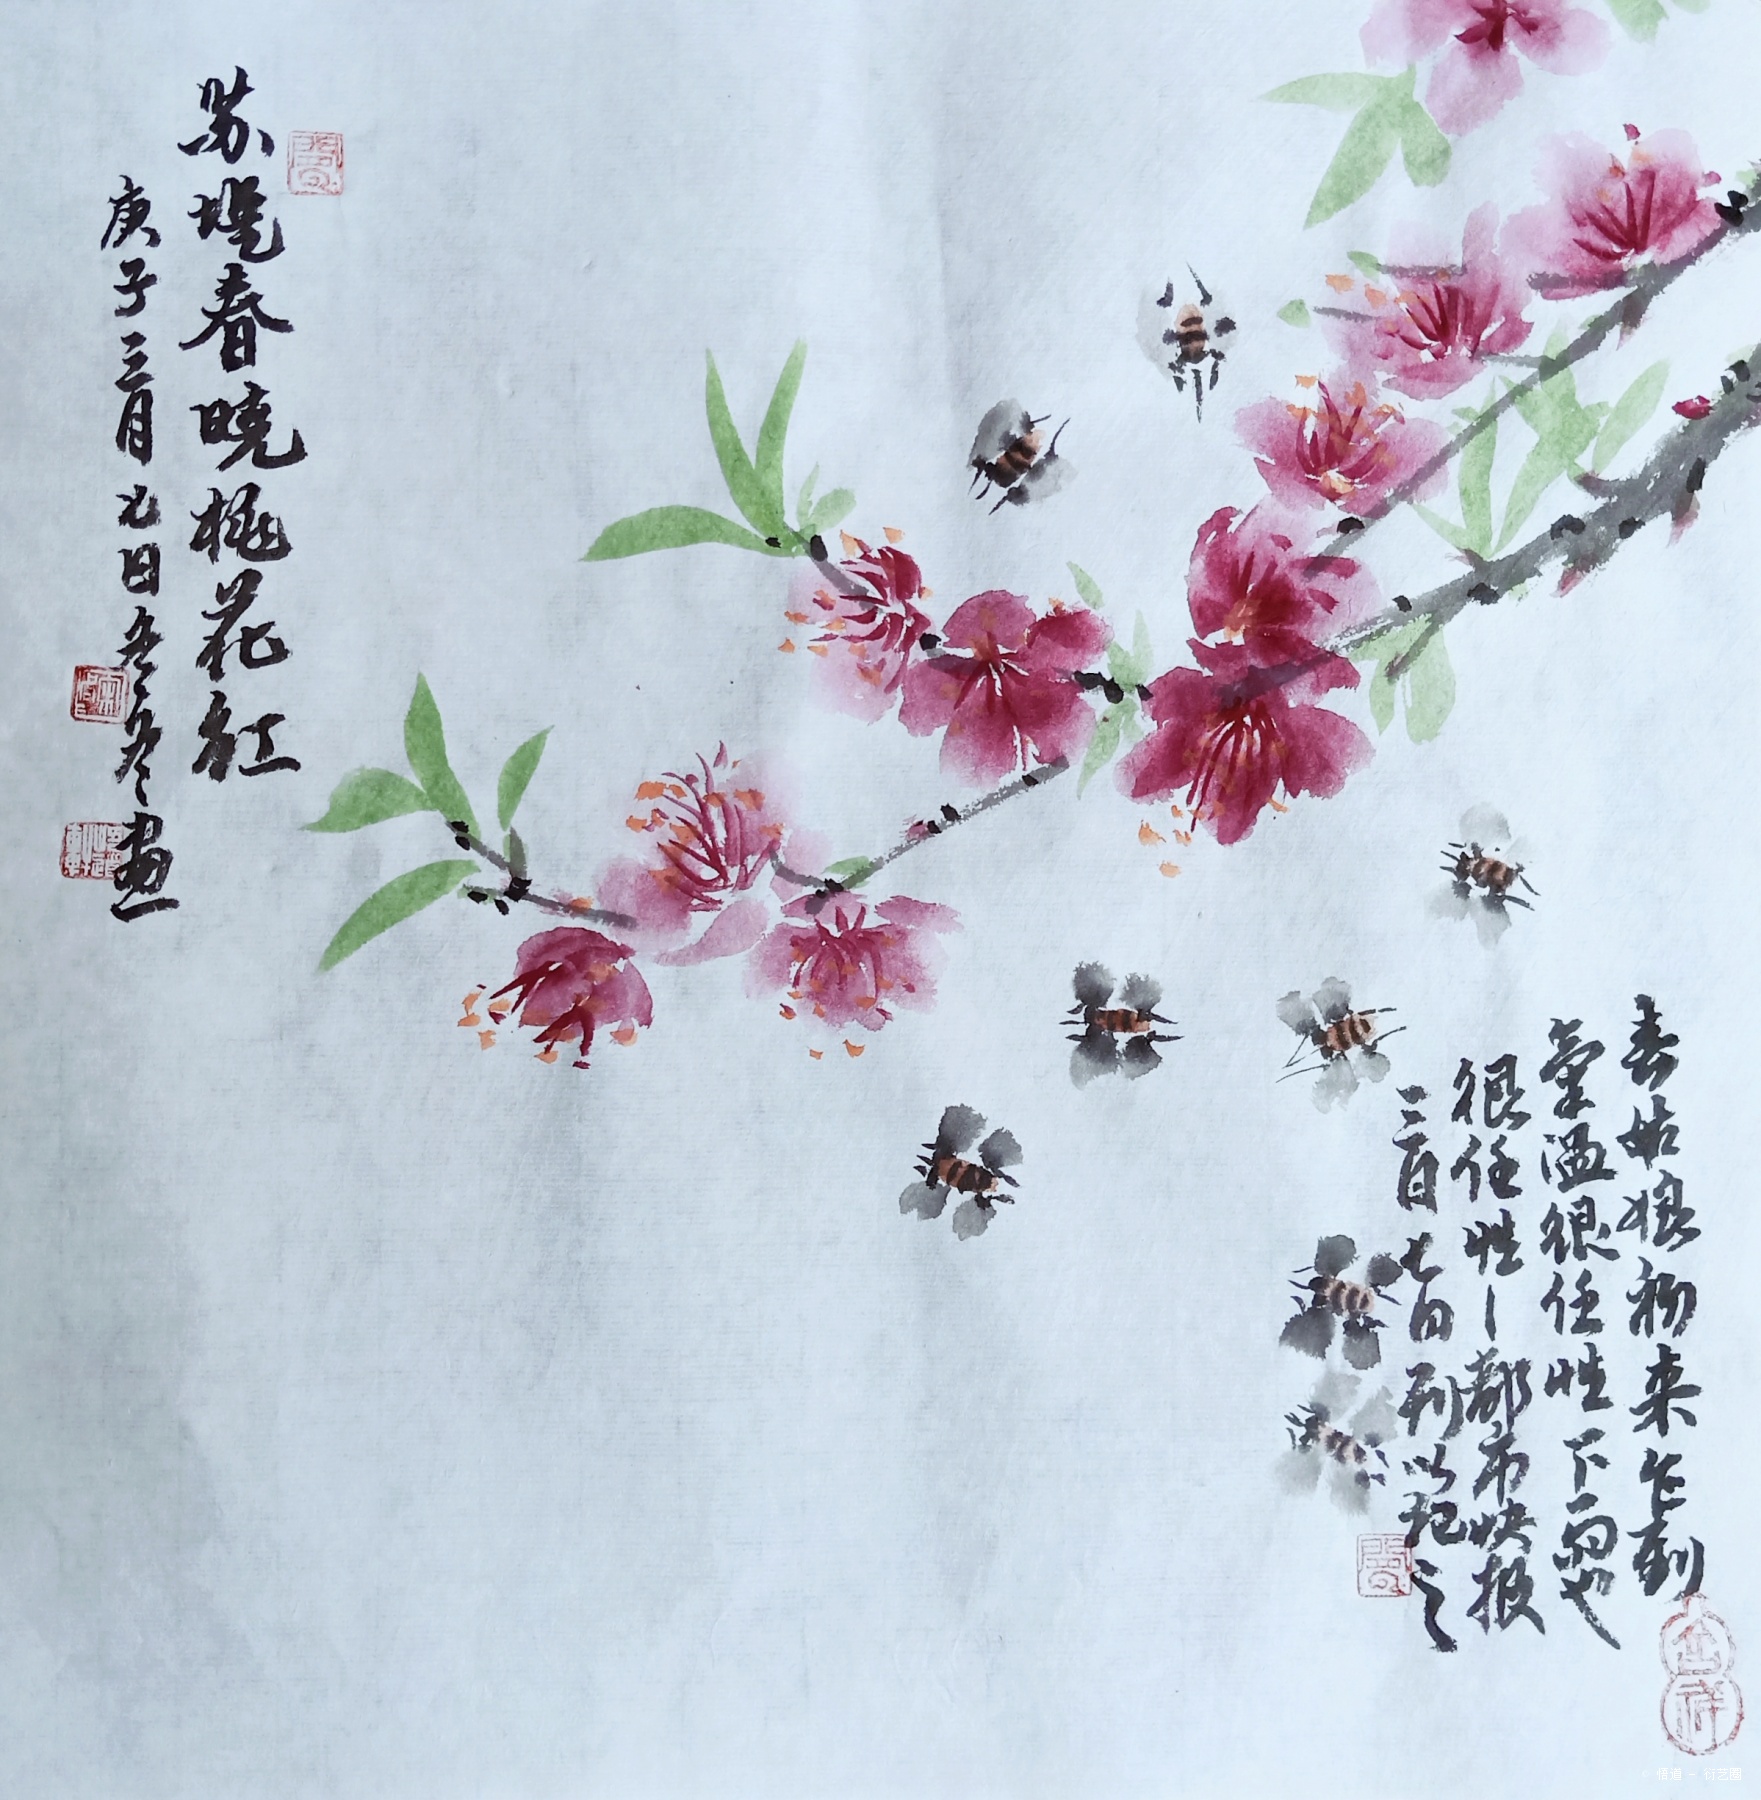 苏堤春曉桃花红
庚子三月九日 画
春姑娘初来乍到
氣温很任性下雨也
很任性—都市快报
三月七日刊以记之
吉祥